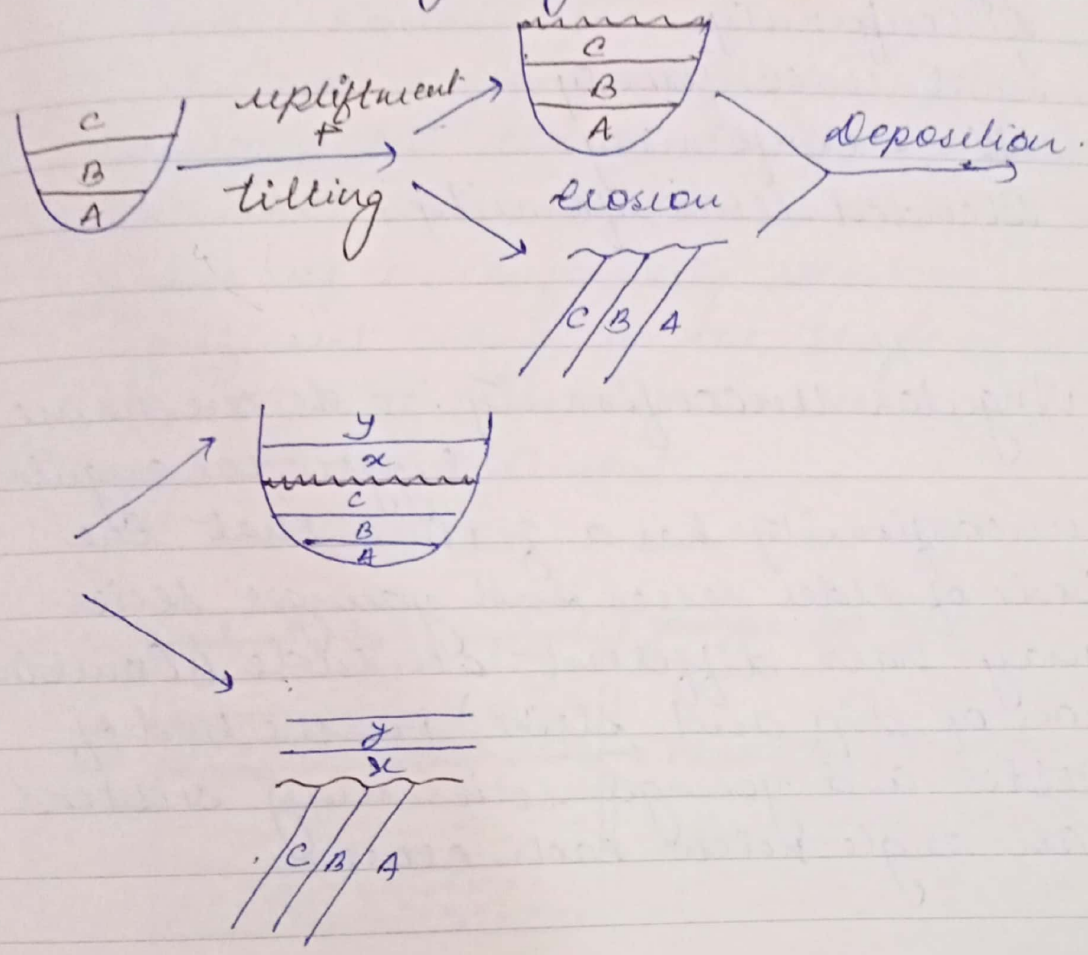 C
B
A
upliftment
+
tilting
C
B
A
Erosion
C B A
Deposition.
y
x
C
B
A
y
x
C B A